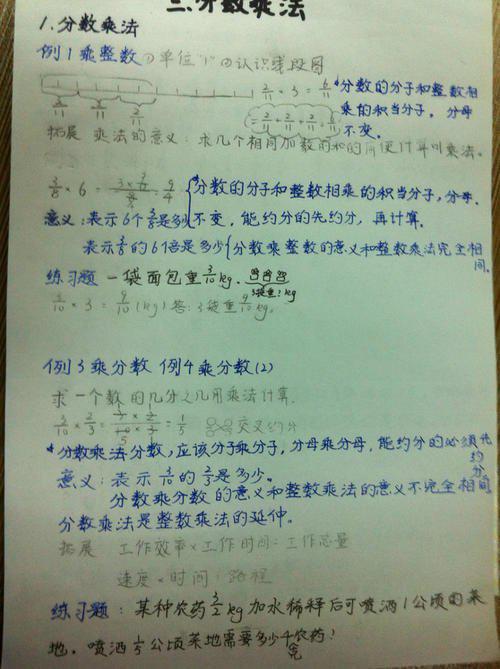 三.分数乘法
1.分数乘法
例1乘整数 ①单位"1"②认识线段图
2/11 × 3 = 6/11 *分数的分子和整数相
2/11 2/11 2/11 = 2/11 + 2/11 + 2/11 = 6/11 乘的积当分子，分母
不变。
拓展 乘法的意义：求几个相同加数的和的简便计算叫乘法。
3/8 × 6 = = 9/4 *分数的分子和整数相乘的积当分子，分母
意义：表示6个3/8是多少 不变，能约分的先约分，再计算。
表示3/8的6倍是多少 分数乘整数的意义和整数乘法完全相
同。
练习题 一袋面包重3/10kg.
3袋重?kg
3/10 × 3 = 9/10 (kg) 答：3袋重9/10kg。
例3乘分数 例4乘分数(2)
求一个数的几分之几用乘法计算.
3/10 × 2/3 = = 1/5 交叉约分
*分数乘法分数，应该分子乘分子，分母乘分母，能约分的必须先
约
分
意义：表示3/10的2/3是多少。
分数乘分数的意义和整数乘法的意义不完全相同
分数乘法是整数乘法的延伸。
拓展 工作效率×工作时间=工作总量
速度×时间=路程
练习题：某种农药3/2kg加水稀释后可喷洒1公顷的菜
地，喷洒1/5公顷菜地需要多少千克农药？